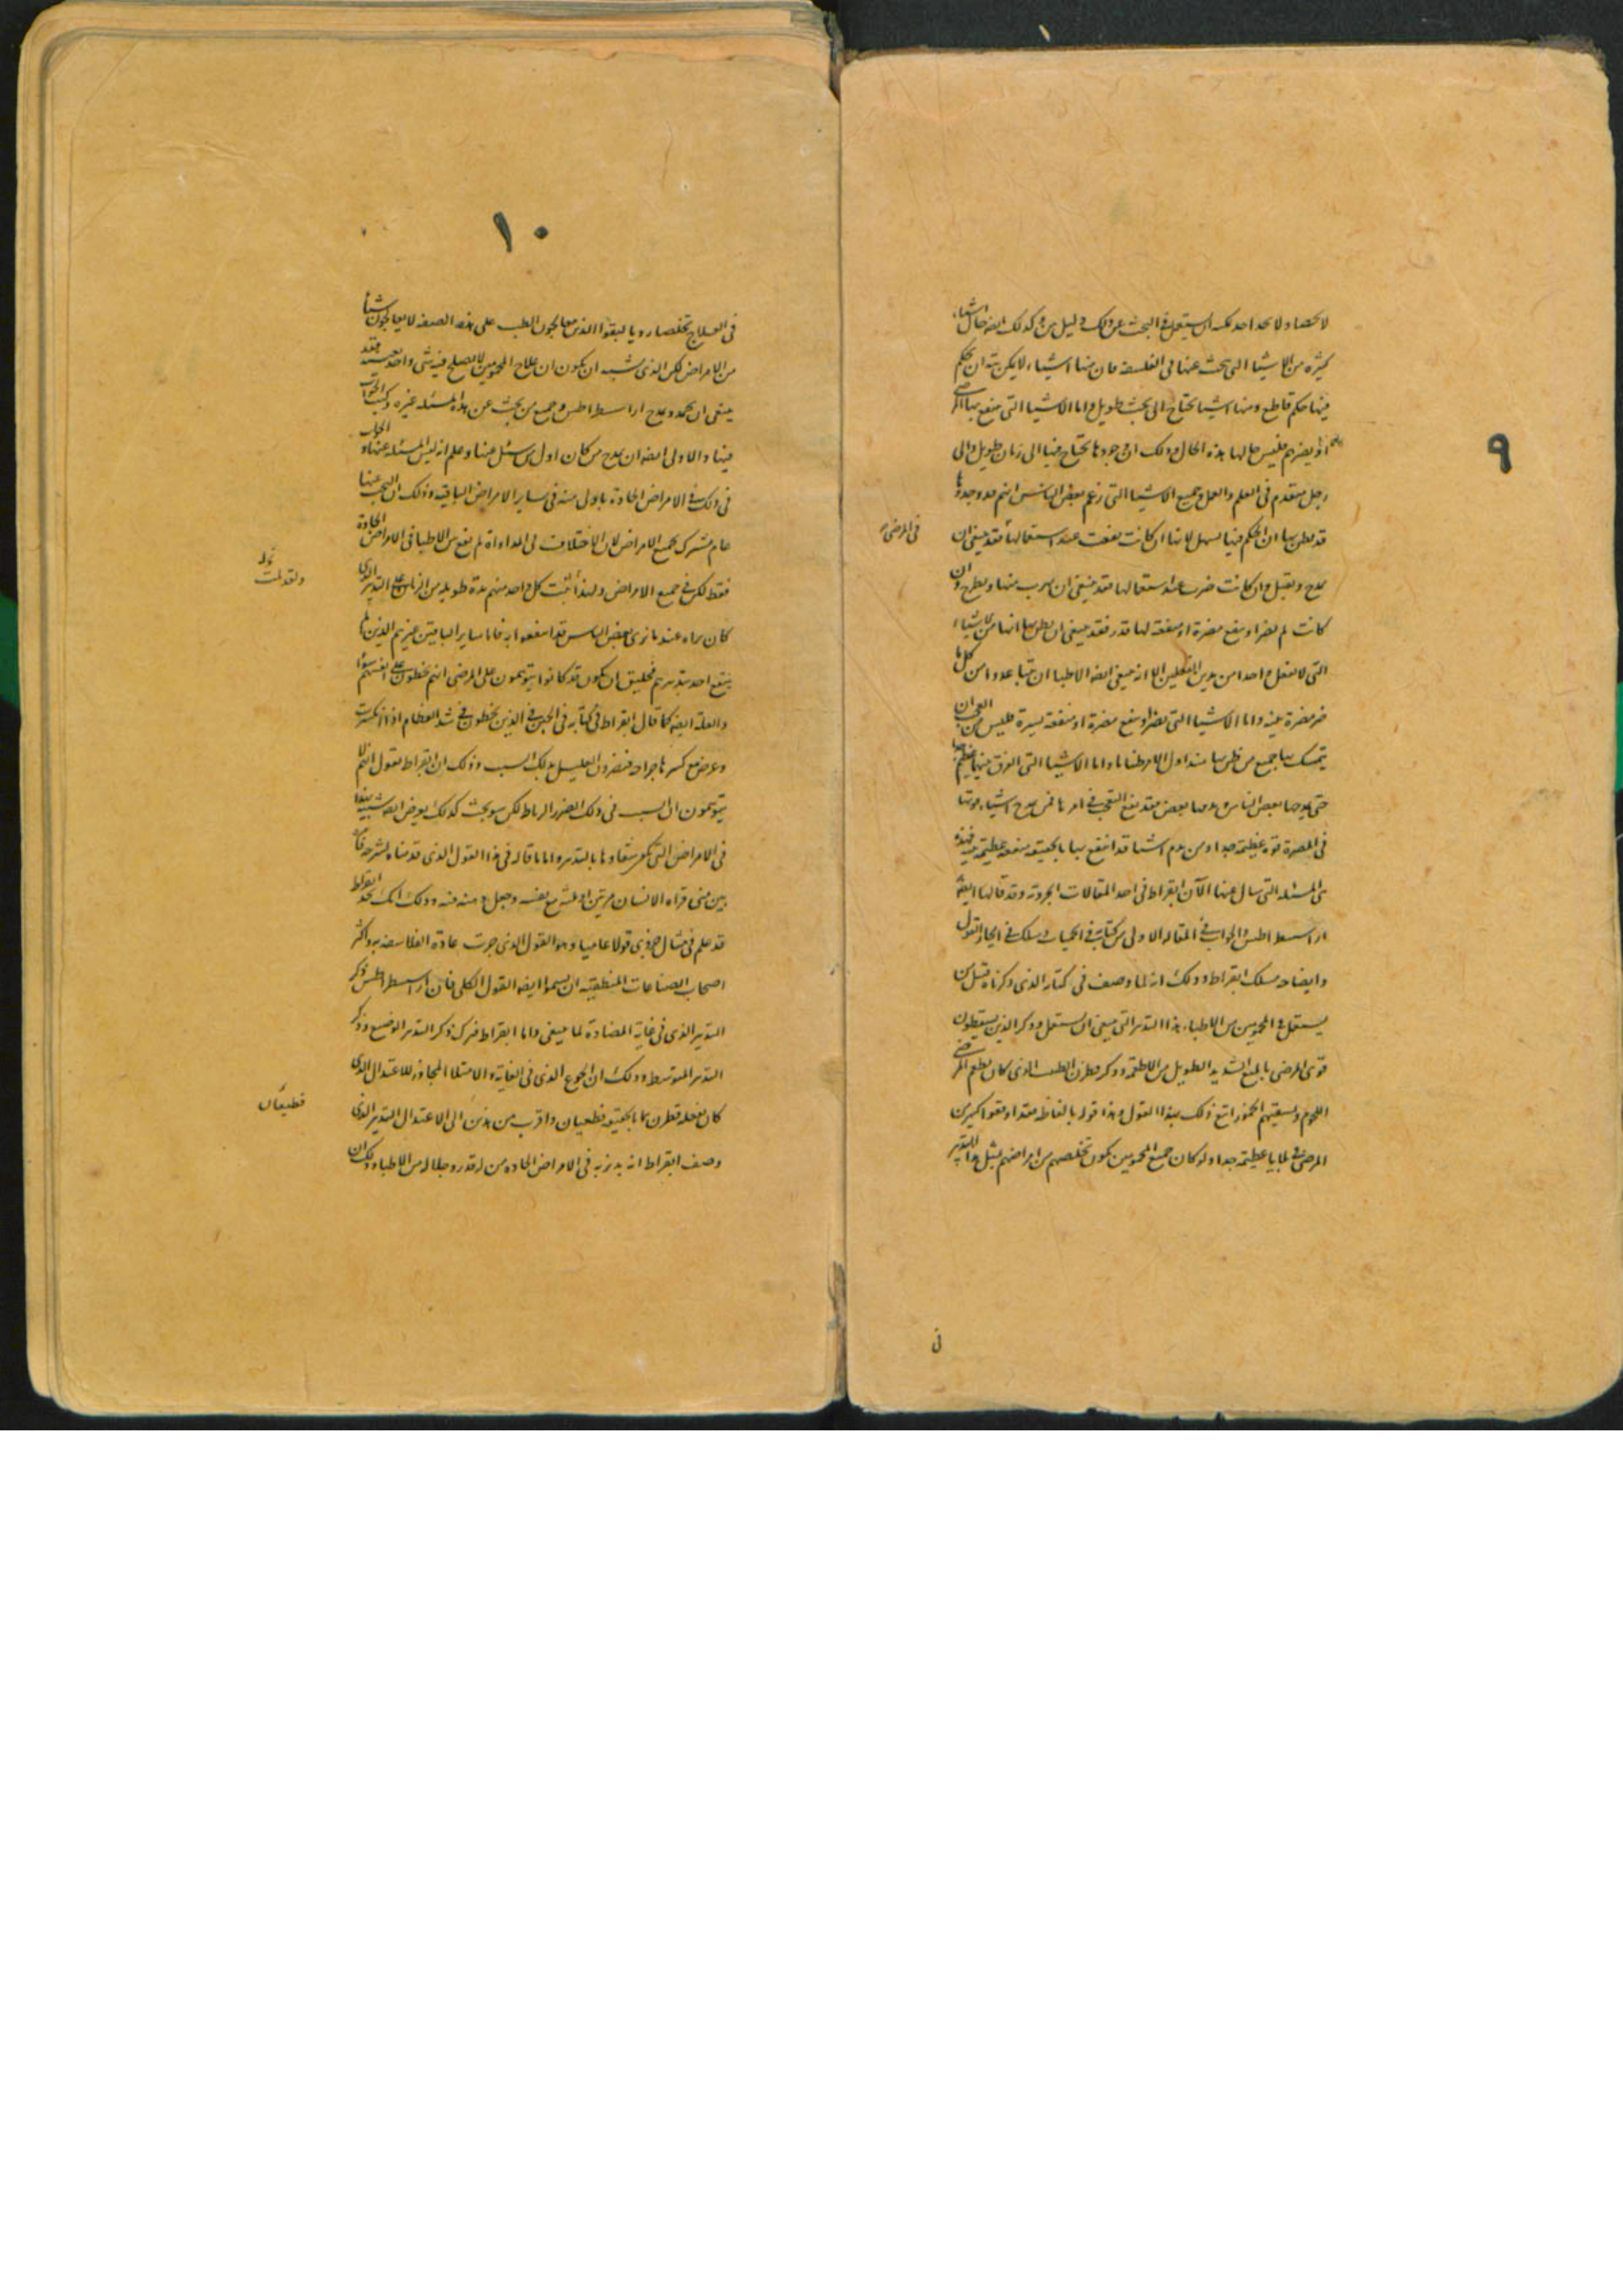 ٩
لا تحصا ولا يحد احد يمكنه ان يستعمل في البحث عن ذلك دليل بين وكذلك ايضا حال اشياء
كثيرة من الاشيا التي يبحث عنها في الفلسفة فان منها اشياء لا يمكن بتة ان يحكم
فيها حكم قاطع ومنها اشيا تحتاج الى بحث طويل واما الاشيا التي ينفع بها المرضى
او يضرهم فليس حالها هذه الحال وذلك ان وجودها يحتاج فيها الى زمان طويل والى
رجل متقدم في العلم والعمل وجميع الاشيا التي زعم بعض الناس انهم قد وجدوها
قد يظن بها ان الحكم فيها سهل لانها ان كانت نفعت عند استعمالها فقد ينبغي ان
في المرضى
يمدح ويقبل وان كانت ضرت عند استعمالها فقد ينبغي ان يهرب منها ويطرح وان
كانت لم تضر او ينفع مضرة او منفعة لها قدر فقد ينبغي ان يظن بها انها من الاشياء
التي لا تفعل واحدا من هذين الفعلين الا انه ينبغي ايضا الاطبا ان يتباعدوا من كل ما
ضر مضرة بينة واما الاشيا التي تضر او ينفع مضرة او منفعة يسيرة فليس من العجب ان
يتمسك بها جميع من ظن بها منذ اول الامر ظنا ما واما الاشيا التي الفرق فيها عظيم جدا
حتى يمدحها بعض الناس ويذمها بعض فقد يقع التعجب في امرها فمن مدح اشياء قوتها
في المضرة قوة عظيمة جدا ومن يذم اشيا قد انتفع بها بالحقيقة منفعة عظيمة فهذه
هي المسئلة التي سال عنها الآن ابقراط في احد المقالات المجردة وقد قالها ايضا
ارسسطراطس والجواب في المقالة الاولى من كتابه في الحميات وسلك في ايجاز القول
وايضاحه مسلك ابقراط وذلك انه لما وصف في كتابه الذي ذكرناه قبل من
يستعمل في المحمومين من الاطباء هذا التدبير التي ينبغي ان يستعمل وذكر الذين يسقطون
قوى المرضى بالمنع الشديد الطويل من الاطعمة وذكر قطرن الطبيب الذي كان يطعم المرضى
اللحوم ويسقيهم الخمور اتبع ذلك بهذا القول وهذا قوله بالفاظه فقد اوقعوا كثيرا من
المرضى في بلايا عظيمة جدا ولو كان جميع المحمومين يكون تخلصهم من امراضهم بمثل هذا التدبير
في
١٠
من الامراض لكن الذي يشبه ان يكون ان علاج المحمومين لا يصلح فيه شي واحد بعينه فقد
ينبغي ان يحمد ويمدح ارسسطراطس وجميع من بحث عن هذه المسئلة غيره وكتب الجواب
فيها والاولى ايضا ان يمدح من كان اول من سئل عنها وعلم انه ليس المسئلة عنها والجواب
في ذلك في الامراض الحادة باولى منه في ساير الامراض الباقية وذلك ان البحث عنها
عام مشترك لجميع الامراض لان الاختلاف في المداواة لم يقع بين الاطبا في الامراض الحادة
فقط لكن في جميع الامراض ولهذا ثبت كل واحد منهم مدة طويلة من الزمان على التدبير الذي
كان يراه عندما نرى بعض الناس قد انتفعوا به فاما ساير الباقين غيرهم الذين لم
ينتفع احد بتدبيرهم فخليق ان يكون قد كانوا يتوهمون على المرضى انهم يخطئون على انفسهم
والعلة ايضا كما قال ابقراط في كتابه في الجبر في الذين يخطئون في شد العظام اذا انكسرت
وعرض مع كسرها جراحة فيضرون العليل بذلك السبب وذلك ان ابقراط يقول انهم لا
يتوهمون ان السبب في ذلك الضرر الرباط لكن سوء بخت كذلك يعرض ايضا شبيه بهذا
في الامراض التي يمكن شفاوها بالتدبير واما ما قاله في هذا القول الذي قدمناه لشرحه فانه
بين متى قراه الانسان مرتين او ثلثة مع نفسه وجعل وذلك انك تجد ابقراط
قد علم في مثال جزوي قولا عاميا وهو القول الذي جرت عادة الفلاسفة به واكثر
اصحاب الصناعات المنطقية ان يسموا ايضا القول الكلي فان ارسسطراطس ذكر
التدبير الذي في غاية المضادة لما ينبغي واما ابقراط فترك ذكر التدبير الوضيع وذكر
التدبير المتوسط وذلك ان الجوع الذي في الغاية والامتلا المجاوز للاعتدال الذي
كان يفعله قطرن هما بالحقيقة فظيعان واقرب من هذين الى الاعتدال التدبير الذي
فظيعان
وصف ابقراط انه يدبر به في الامراض الحادة من له قدر وجلالة من الاطباء وذلك ان